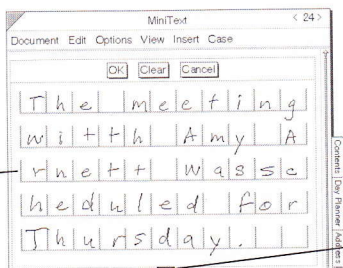 MiniText < 24 >
Document Edit Options View Insert Case
OK Clear Cancel
The meeting
witth Amy A
rnett wassc
heduled for
Thursday.
Contents Day Planner Address